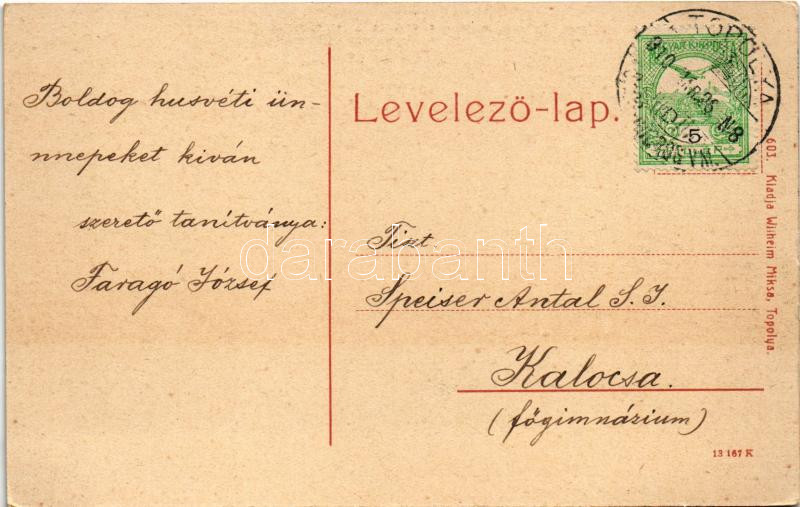 Boldog husvéti ün-
nnepeket kiván
szerető tanítványa:
Faragó József
Levelező-lap.
TOPOLYA
910
N8
5
Tiszt
Speiser Antal S. J.
Kalocsa.
(főgimnázium)
603. Kiadja Wilheim Miksa, Topolya.
13 167 K
darabanth